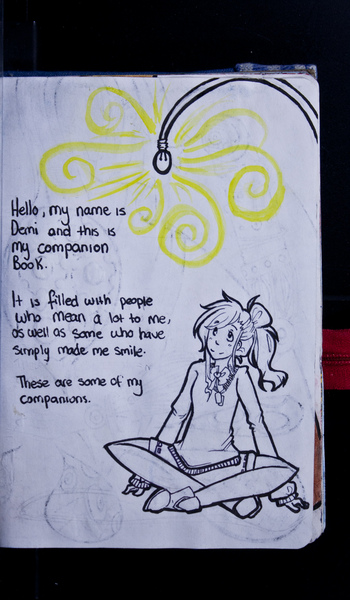 Hello, my name is
Demi and this is
my companion
Book.
It is filled with people
who mean a lot to me,
as well as some who have
simply made me smile.
These are some of my
companions.